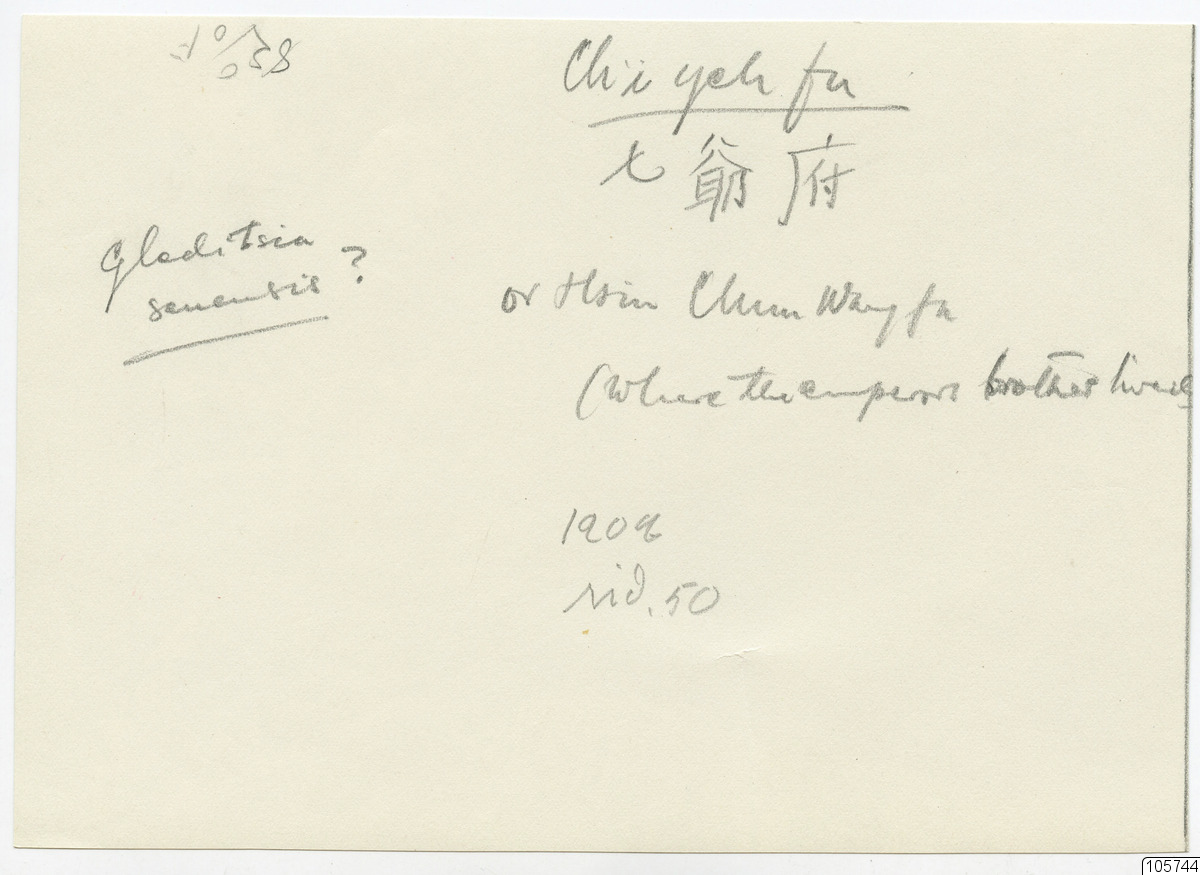 Ch'i yeh fu
七爺府
Gleditsia
senensis?
or Hsin Chun Wang fu
(Where the emperors brother lived
190
sid. 50
105744